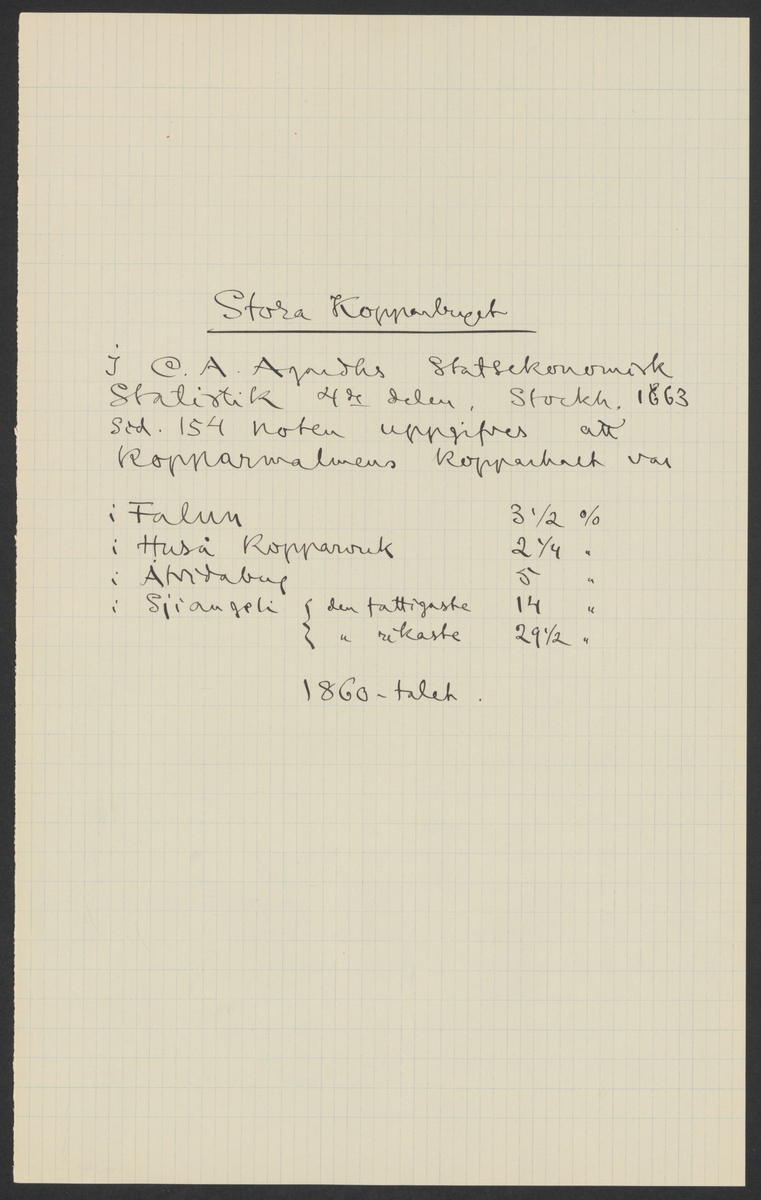 Stora Kopparberget
I C. A. Agardhs Statsekonomisk
Statistik 4de delen, Stockh. 1863
sid. 154 noten uppgifves att
Kopparmalmens kopparhalt var
i Falun 3 1/2 %
i Huså Kopparverk 2 1/4 "
i Åtvidaberg 5 "
i Sjiangeli { den fattigaste 14 "
{ " rikaste 29 1/2 "
1860-talet.